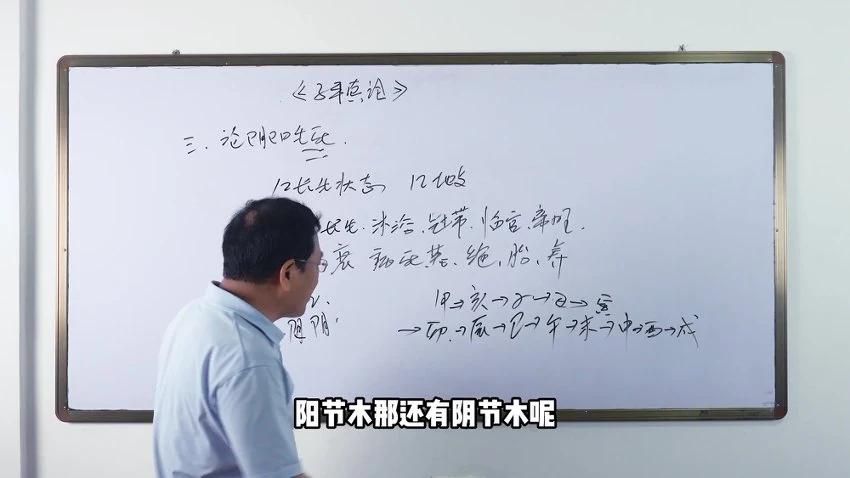 《子平真诠》
三、论阴阳生死.
12长生状态 12地支
长生.沐浴.冠带.临官.帝旺.
衰 病死.墓.绝.胎.养
甲→亥→子→丑→寅
阳 阴:
→卯→辰→巳→午→未→申→酉→戌
阳节木那还有阴节木呢